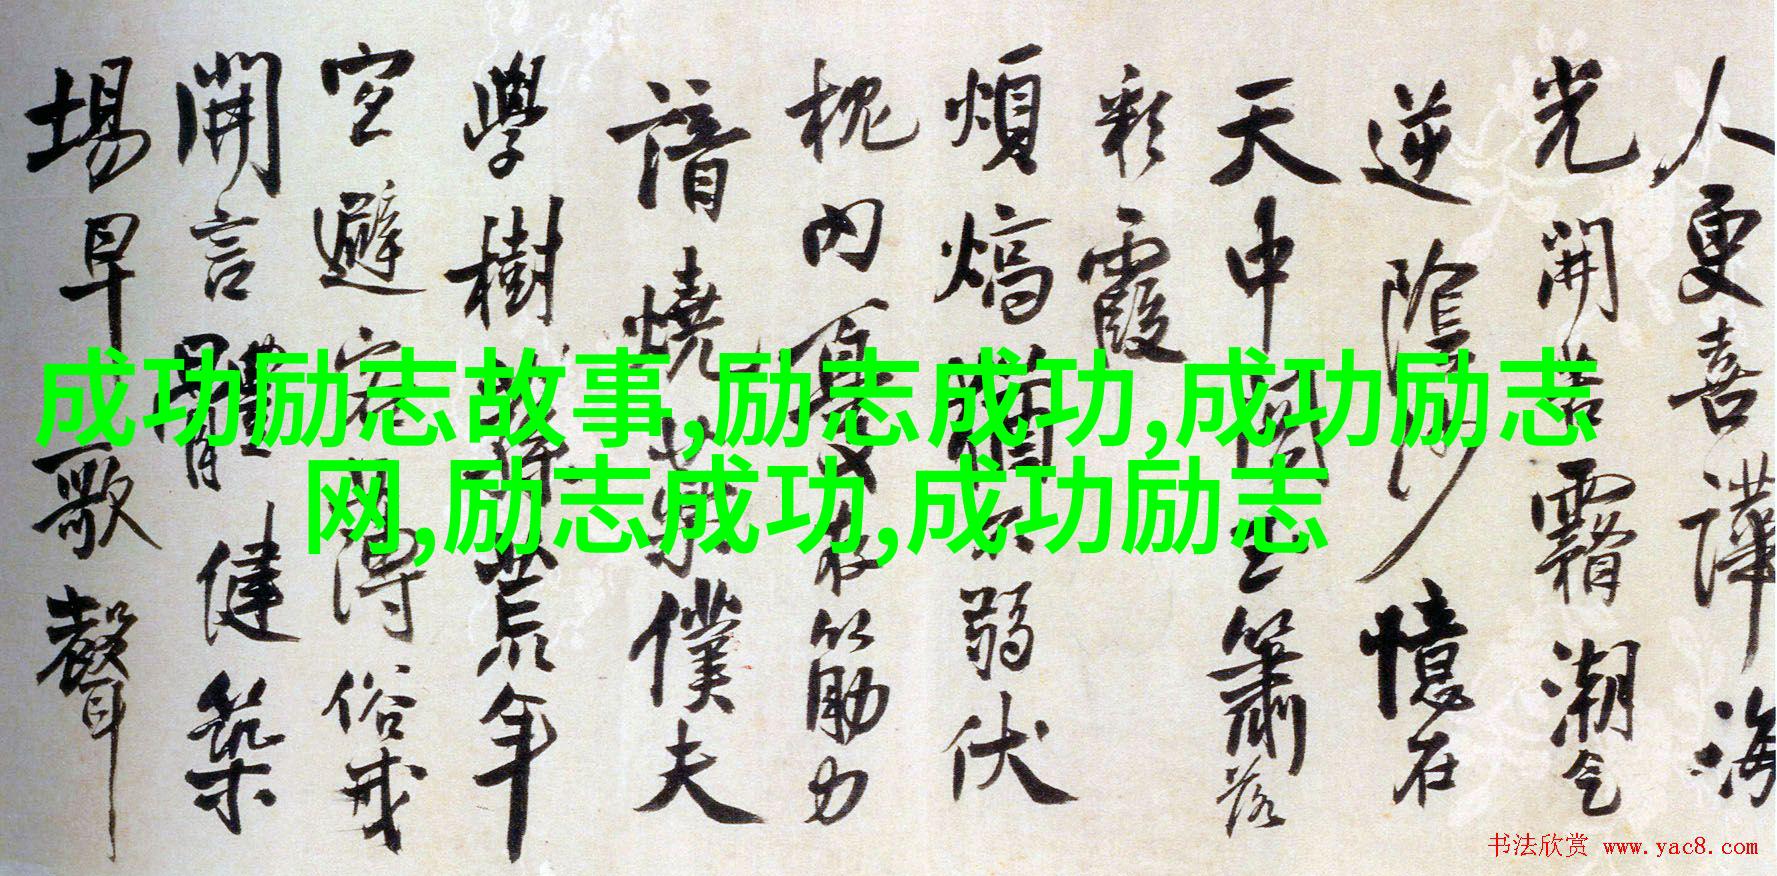 人更喜譁海
光開 霜潮乞
逆陰 憶在
天中 簫落
彩霞
煩熇 弱伏
枕内 筋力
諳燒 僕夫
學樹 荒年
空避客 得俗戒
開言體健築
場早 歌聲
成功励志故事,励志成功,成功励志
网,励志成功,成功励志
书法欣赏 www.yac8.com